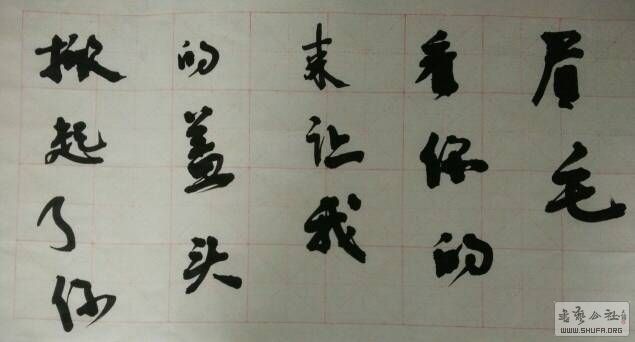 掀起了你
的盖头
来让我
看你的
眉毛
书艺公社
WWW.SHUFA.ORG